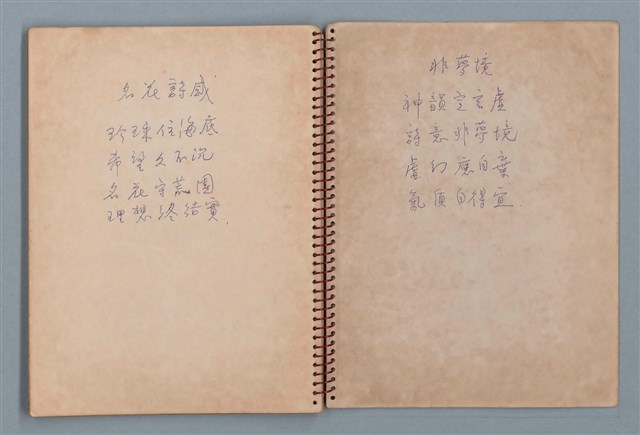 名花詩感
珍珠住海底
希望久不沉
名花守荒園
理想終結實.
非夢境
神韻定言虛
詩意非夢境
虛幻應自棄
氣頂自得宜.